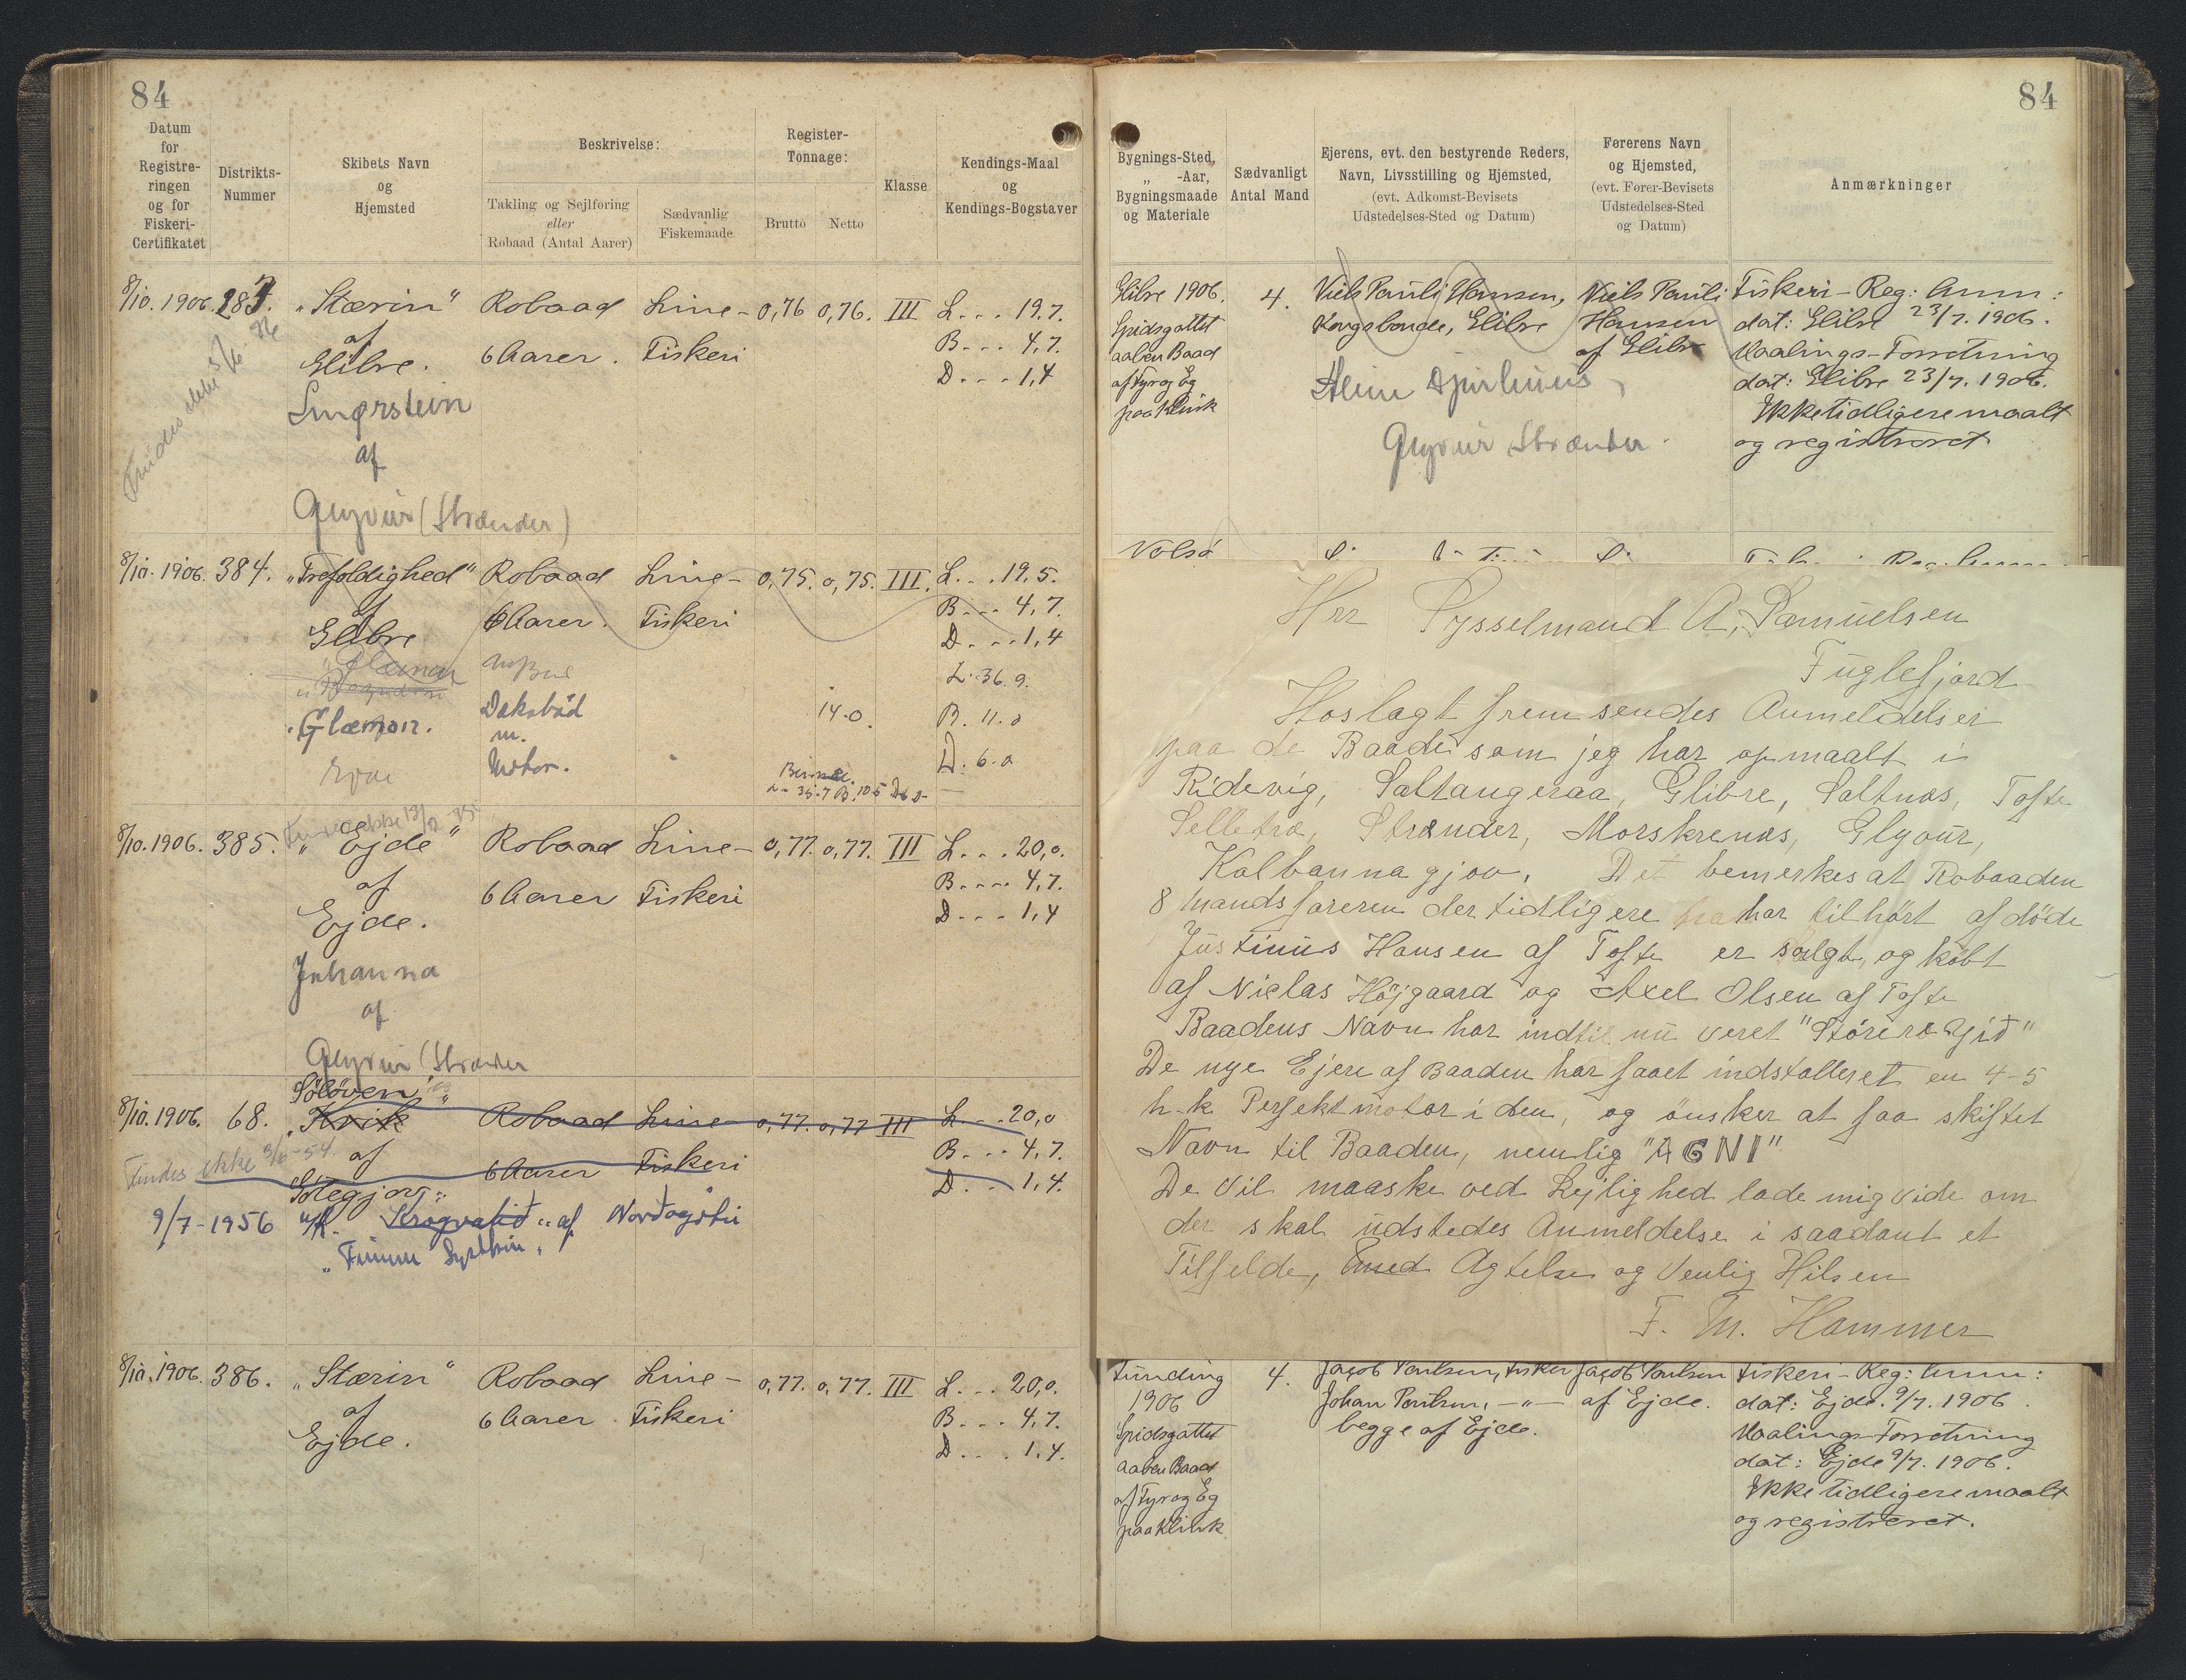 84
Datum
for
Registre-
ringen
og for
Fiskeri-
Certifikatet
Distrikts-
Nummer
Skibets Navn
og
Hjemsted
Beskrivelse:
Takling og Sejlføring
eller
Robaad (Antal Aarer)
Sædvanlig
Fiskemaade
Register-
Tonnage:
Brutto Netto
Klasse
Kendings-Maal
og
Kendings-Bogstaver
8/10. 1906. „Stærin" Robaad Line- 0,76 0,76. III L... 19.7.
af 6 Aarer. Fiskeri B... 4,7.
Glibre. D... 1,4
Findes ikke
af
Glyvur (Strænder)
8/10. 1906. 384. „Trefoldighed" Robaad Line- 0,75. 0,75. III. L... 19,5.
af 6 Aarer. Fiskeri B... 4,7.
Glibre D... 1,4
L. 36.9.
Glæmon. Deksbåd 14.0. B. 11.0
m. D. 6.0
Motor.
8/10. 1906. 385. „Ejde" Robaad Line- 0,77. 0,77. III L... 20,0.
af 6 Aarer Fiskeri B... 4,7.
Ejde. D... 1,4
Johanna
af
Glyvur (Strænder
Söløven"
8/10. 1906. 68. „Kvik Robaad Line- 0,77. 0,77 III L... 20,0
Findes ikke 9/6-54. af 6 Aarer Fiskeri B... 4,7.
Götegjov: D... 1,4.
9/7-1956 af Norðagøtu
8/10. 1906. 386. „Stærin" Robaad Line- 0,77. 0,77. III L... 20,0.
af 6 Aarer. Fiskeri B... 4,7.
Ejde. D... 1,4.
84
Bygnings-Sted,
„ -Aar,
Bygningsmaade
og Materiale
Sædvanligt
Antal Mand
Ejerens, evt. den bestyrende Reders,
Navn, Livsstilling og Hjemsted,
(evt. Adkomst-Bevisets
Udstedelses-Sted og Datum)
Førerens Navn
og Hjemsted,
(evt. Fører-Bevisets
Udstedelses-Sted
og Datum)
Anmærkninger
Glibre 1906. 4. Niels Pauli Hansen, Niels Pauli Fiskeri-Reg: Anm:
Spidsgattet Kongsbonde, Glibre Hansen dat: Glibre 23/7. 1906.
aaben Baad af Glibre Maalings-Forretning
af Fyr og Eg dat: Glibre 23/7. 1906.
paa Klink Ikke tidligere maalt
og registreret
Glyvur Strænder.
Nolsö
Hrr Sysselmand A. Samuelsen
Fuglefjord
Hoslagt fremsendes Anmeldelser
paa de Baade som jeg har opmaalt i
Ridevig, Saltangeraa, Glibre, Saltnæs, Tofte
Selletræ, Strænder, Morskrenæs, Glyvur,
Kolbannagjov. Det bemerkes at Robaaden
8 mandsfareren der tidligere har tilhört afdöde
Justinus Hansen af Tofte er sælgt, og köbt
af Niclas Höjgaard og Axel Olsen af Tofte
Baadens Navn har indtil nu veret
De nye Ejere af Baaden har faaet indstalleret en 4-5
h-k Perfekt motor i den, og önsker at faa skiftet
Navn til Baaden, nemlig "AGNI"
De vil maaske ved Lejlighed lade mig vide om
der skal udstedes Anmeldelse i saadant et
Tilfelde, med Agtelse og Venlig Hilsen
F. M. Hammer
Funding 4. Jacob Poulsen, Fisker Jacob Poulsen Fiskeri-Reg: Anm:
1906 Johan Poulsen, -"- af Ejde. dat: Ejde. 9/7. 1906.
Spidsgattet begge af Ejde. Maalings-Forretning
aaben Baad dat: Ejde 9/7. 1906.
af Fyr og Eg Ikke tidligere maalt
paa Klink og registreret.